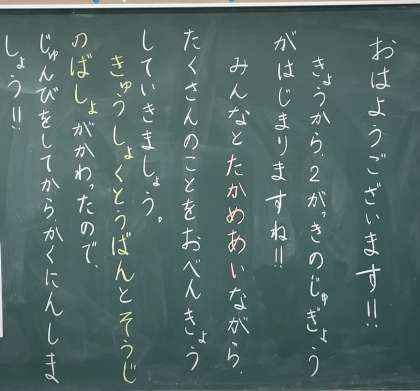 おはようございます!!
きょうから、2がっきのじゅぎょう
がはじまりますね!!
みんなとたかめあいながら、
たくさんのことをおべんきょう
していきましょう。
きゅうしょくとうばんとそうじ
のばしょがかわったので、
じゅんびをしてから、かくにんしま
しょう!!